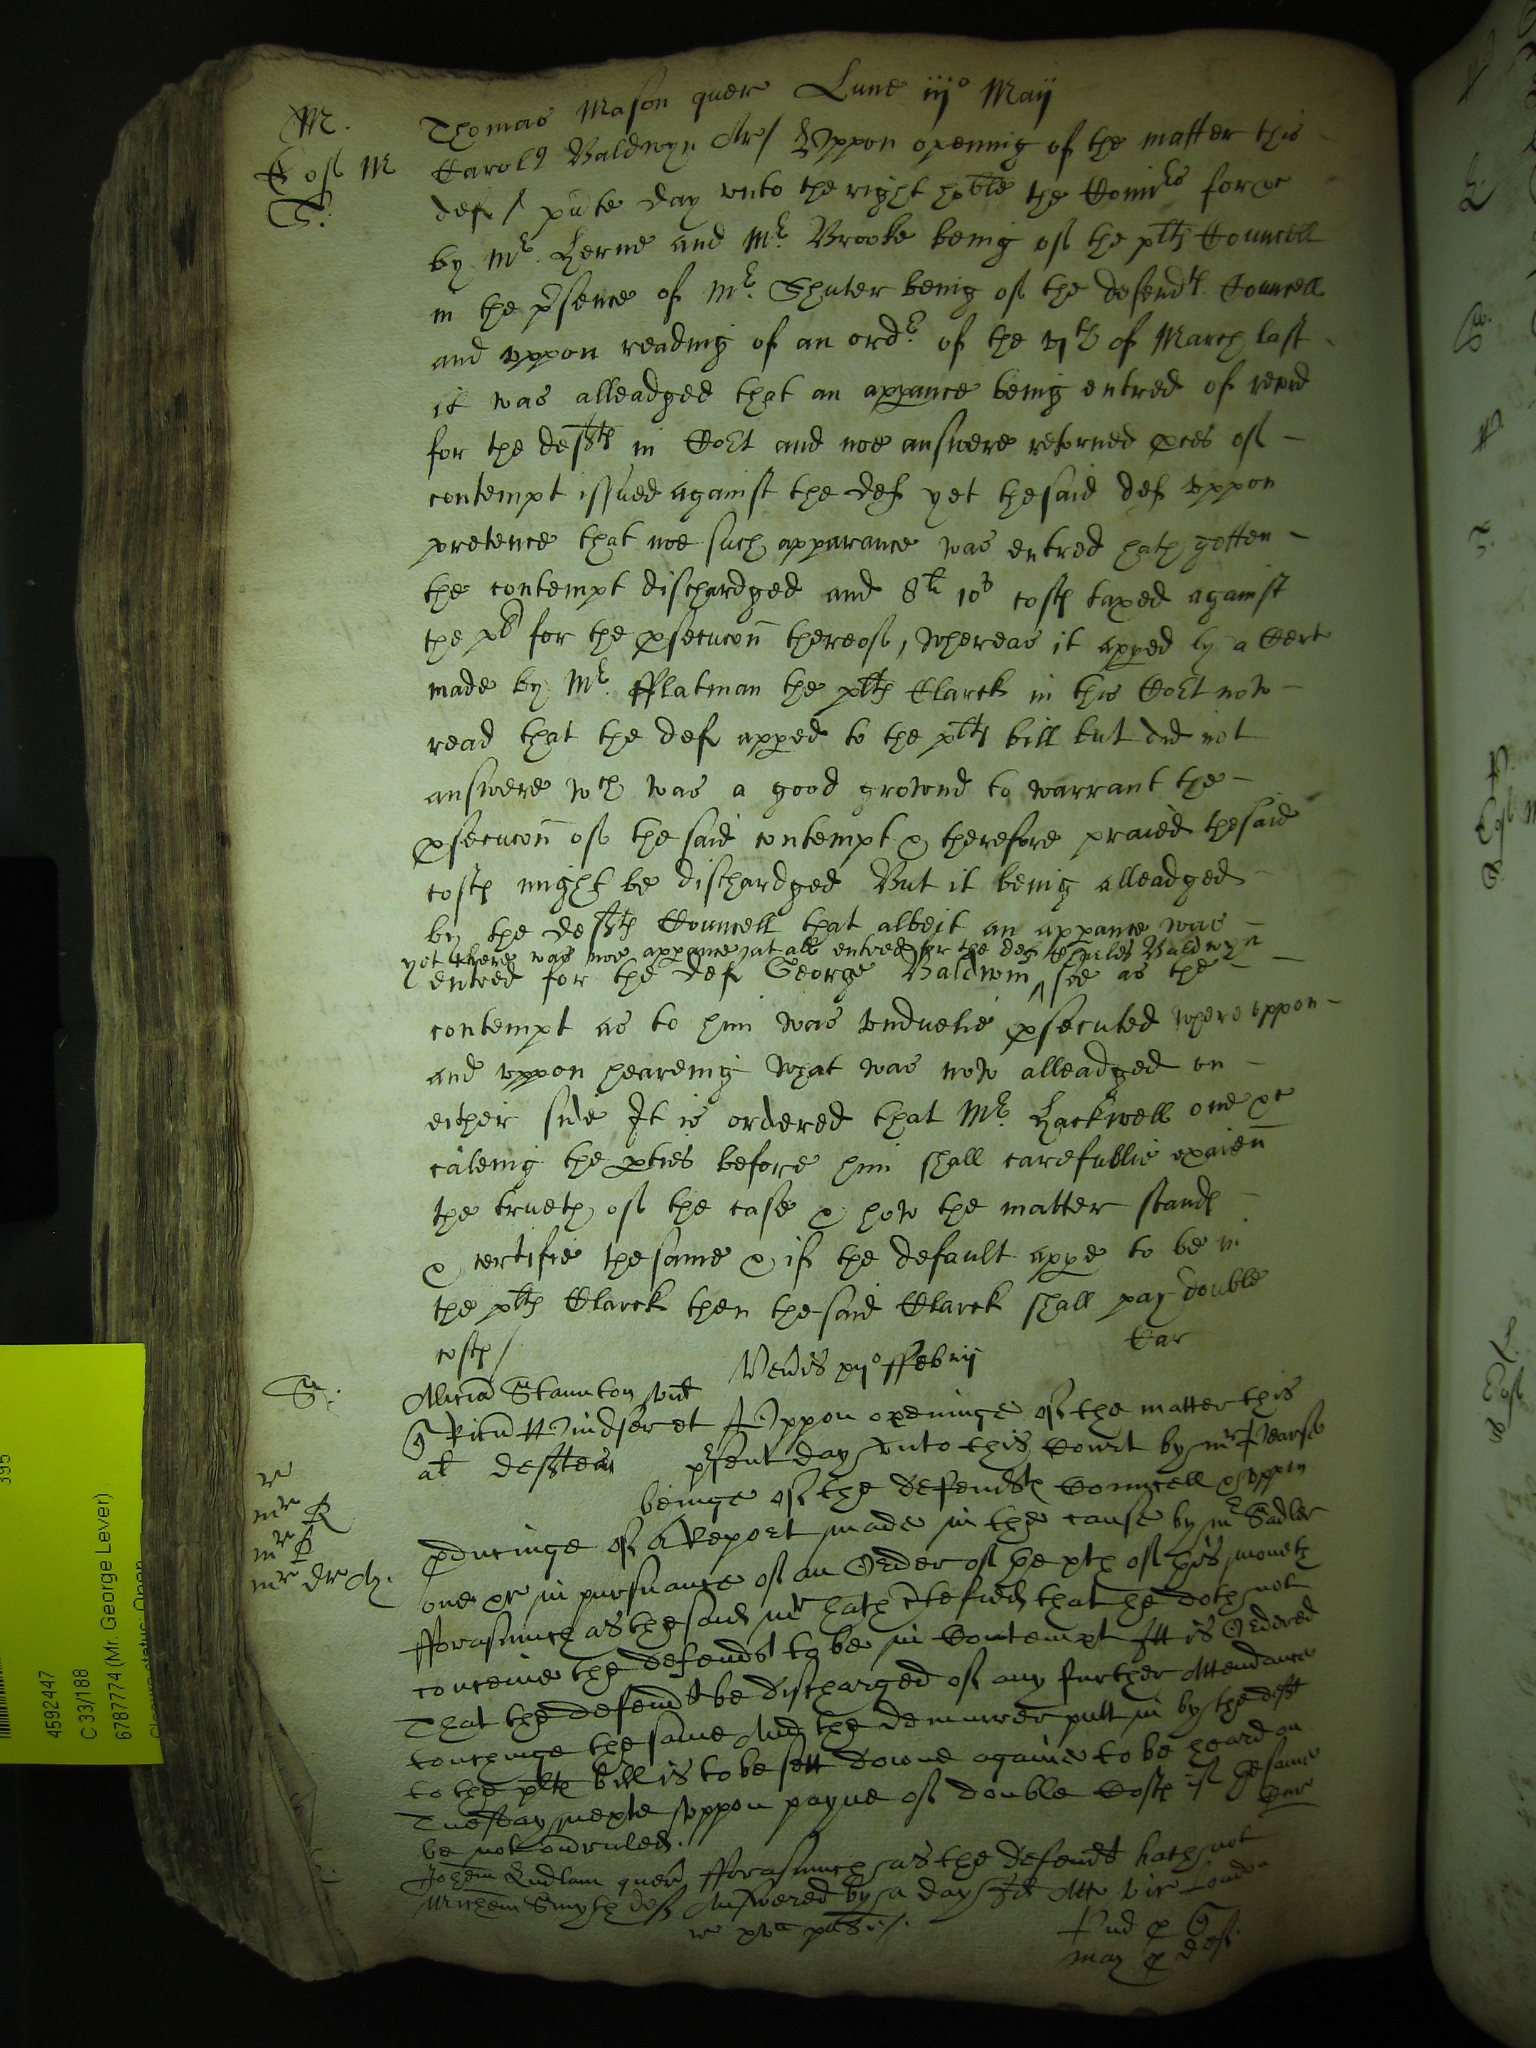 M.
Cost M
S:
Thomas Mason quer Lune iij° Maij
Carol9 Baldwyn Ar / Uppon opening of the matter this
def / pñte day vnto the right hoble the Comrs for &c
by Mr. Herne and Mr. Brooke being of the plts Councell
in the psence of Mr. Shuter being of the defendts Councell
and vppon reading of an ordr of the of March last
it was alleadged that an appance being entred of record
for the defts in Cort and noe answere retorned pces of
contempt issued against the def yet the said def vppon
pretence that noe such apparance was entred hath gotten
the contempt dischardged and 8li 10s costs taxed against
the pl for the psecucon thereof, whereas it apped by a Cert
made by Mr. fflatman the plts Clarck in this Cort now
read that the def apped to the plts bill but did not
answere wch was a good grownd to warrant the
psecucon of the said contempt & therefore praied the said
costs might be dischardged But it being alleadged
by the defts Councell that albeit an appance was
yet there was noe appance at all entred for the def Charles Baldwyn
entred for the def George Baldwin soe as the
contempt as to him was vnduelie psecuted whereuppon
and vppon heareing what was now alleadged on
either side It is ordered that Mr. Hackwell one &c
caleing the pties before him shall carefullie exaien
the trueth of the case & how the matter stands
& certifie the same & if the default appe to be in
the plts Clarck then the said Clarck shall pay double
costs /
Car
S:
Ven9is xij° ffebrij
Alicia Staunton vid
Q Ricu Windser et Uppon openinge of the matter this
al deftes psent day vnto this Court by mr Pearse
beinge of the defendts Councell & vppon
pducinge of a Report made in the cause by mr Sadler
one &c in pursuance of an Order of the xth of this moneth
fforasmuch as the said mr hath ctefied that he doth not
conceive the defendt to be in Contempt Itt is Ordered
That the defendt be discharged of any further Attendance
touchinge the same And the demurrer putt in by the deft
to the plts bill is to be sett downe againe to be heard on
Tuesday nexte vppon payne of double Costs if the same
be not ouerruled.
Car
r
mr R
mr S
mr Dr A.
Johem Ludlam quer fforasmuch as the defendt hath not
Michem Smyth def Answered by a day Id Att vic London
r xvna pas: /.
Lud p Q
may p def.
395
4592447
C 33/188
6787774 (Mr. George Lever)
Closure status: Open